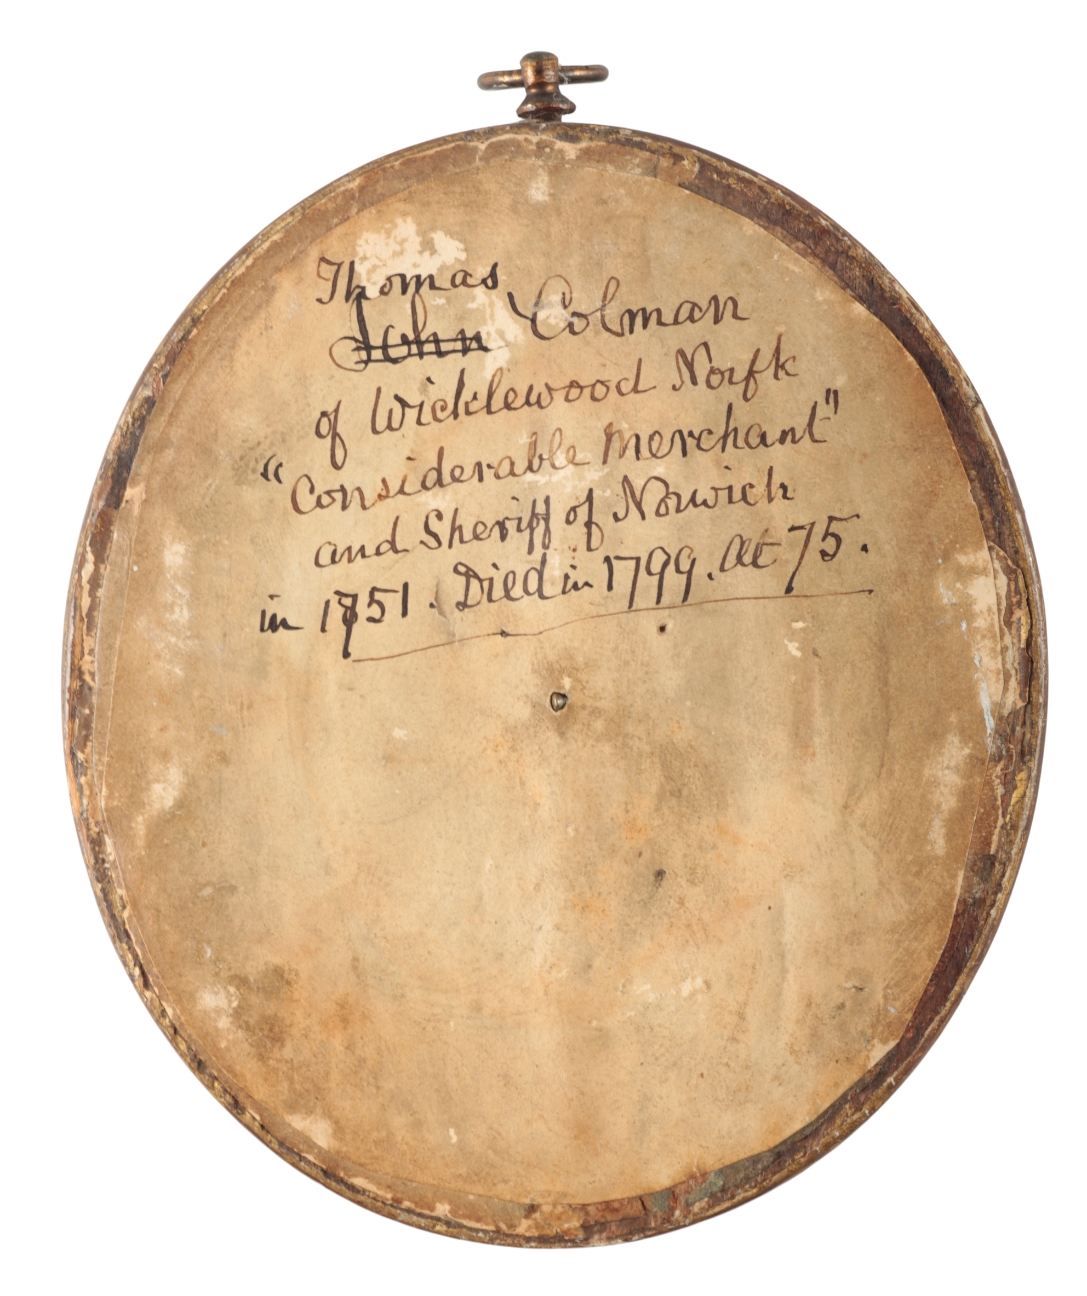 Thomas
John Colman
of Wicklewood Norfk
"Considerable Merchant"
and Sheriff of Norwich
in 1751. Died in 1799. At 75.